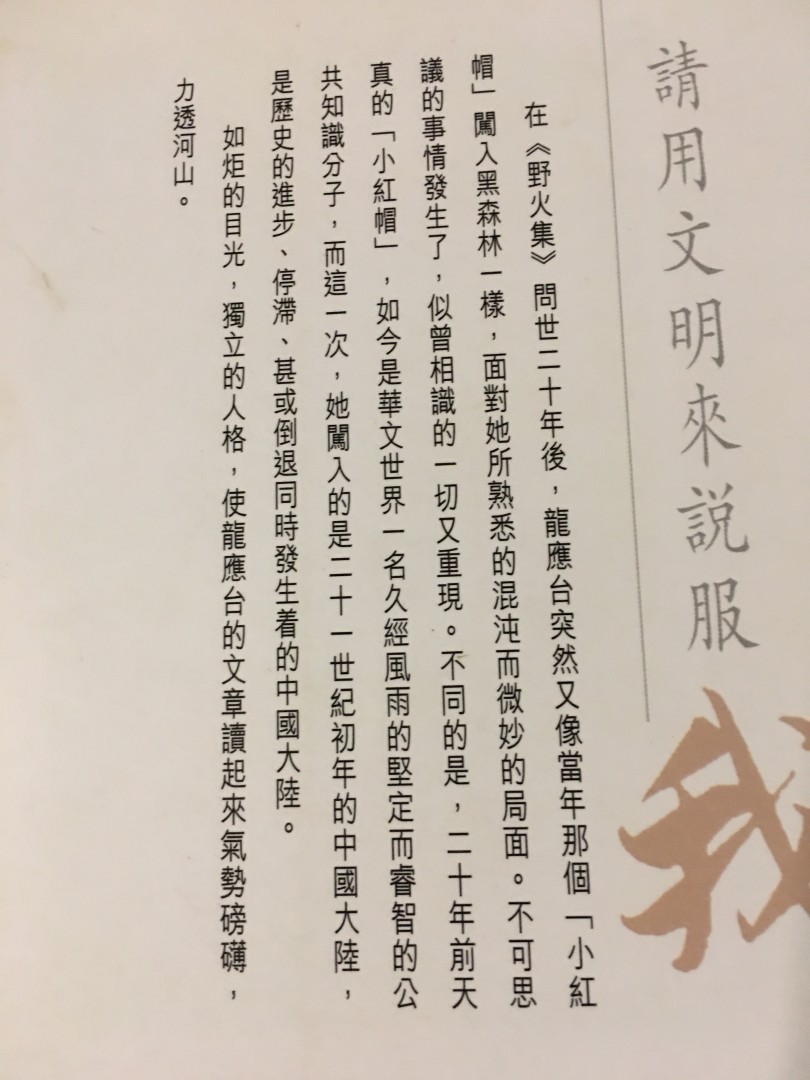 請用文明來説服我
在《野火集》問世二十年後，龍應台突然又像當年那個「小紅
帽」闖入黑森林一樣，面對她所熟悉的混沌而微妙的局面。不可思
議的事情發生了，似曾相識的一切又重現。不同的是，二十年前天
真的「小紅帽」，如今是華文世界一名久經風雨的堅定而睿智的公
共知識分子，而這一次，她闖入的是二十一世紀初年的中國大陸，
是歷史的進步、停滯、甚或倒退同時發生着的中國大陸。
如炬的目光，獨立的人格，使龍應台的文章讀起來氣勢磅礴，
力透河山。